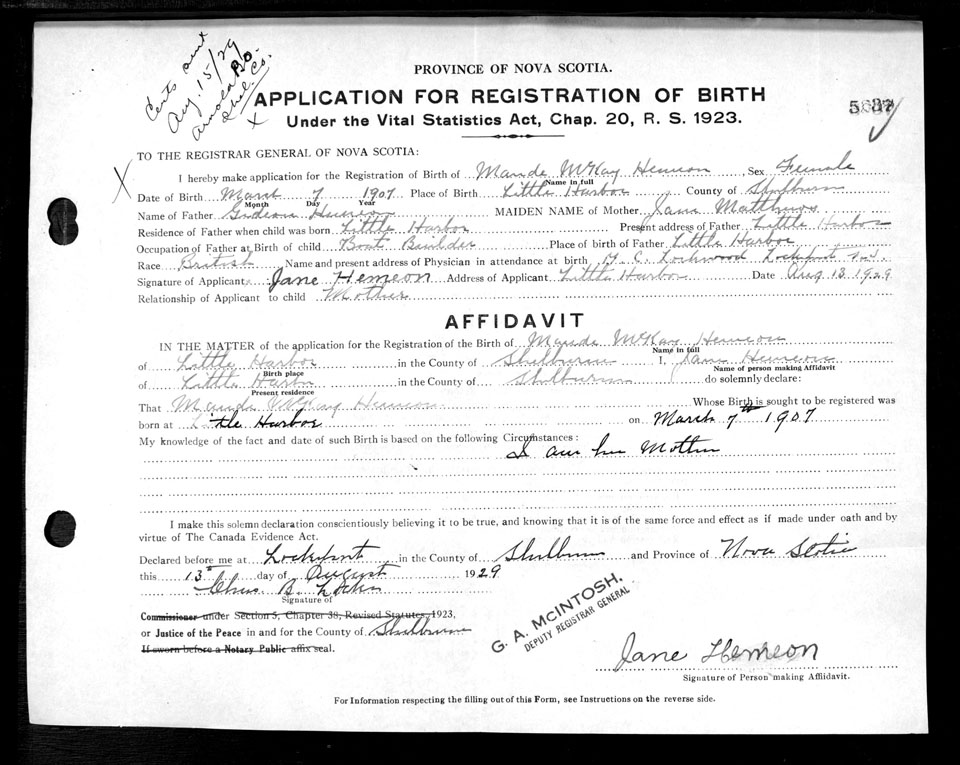 Certs sent
Aug. 15/29
Arnold Bo.
Shel. Co.
X
PROVINCE OF NOVA SCOTIA.
APPLICATION FOR REGISTRATION OF BIRTH
Under the Vital Statistics Act, Chap. 20, R. S. 1923.
X
TO THE REGISTRAR GENERAL OF NOVA SCOTIA:
I hereby make application for the Registration of Birth of Maude McKay Hemeon Sex Female
Name in full
Date of Birth March 7 1907 Place of Birth Little Harbor County of Shelburne
Month Day Year
Name of Father Gideon Hemeon MAIDEN NAME of Mother Jane Matthews
Residence of Father when child was born Little Harbor Present address of Father Little Harbor
Occupation of Father at Birth of child Boat Builder Place of birth of Father Little Harbor
Race British Name and present address of Physician in attendance at birth C. Lockwood Lockeport N.S.
Signature of Applicant Jane Hemeon Address of Applicant Little Harbor Date Aug 13 1929
Relationship of Applicant to child Mother
AFFIDAVIT
IN THE MATTER of the application for the Registration of the Birth of Maude McKay Hemeon
Name in full
of Little Harbor in the County of Shelburne I, Jane Hemeon
Birth place Name of person making Affidavit
of Little Harbor in the County of Shelburne do solemnly declare:
Present residence
That Maude McKay Hemeon Whose Birth is sought to be registered was
born at Little Harbor on March 7th 1907
My knowledge of the fact and date of such Birth is based on the following Circumstances:
I am her Mother
I make this solemn declaration conscientiously believing it to be true, and knowing that it is of the same force and effect as if made under oath and by
virtue of The Canada Evidence Act.
Declared before me at Lockeport in the County of Shelburne and Province of Nova Scotia
this 13th day of August 1929
Chas. B. Locke
Signature of
Commissioner under Section 5, Chapter 38, Revised Statutes, 1923,
or Justice of the Peace in and for the County of Shelburne
If sworn before a Notary Public affix seal.
G. A. McINTOSH,
DEPUTY REGISTRAR GENERAL
Jane Hemeon
Signature of Person making Affidavit.
For Information respecting the filling out of this Form, see Instructions on the reverse side.